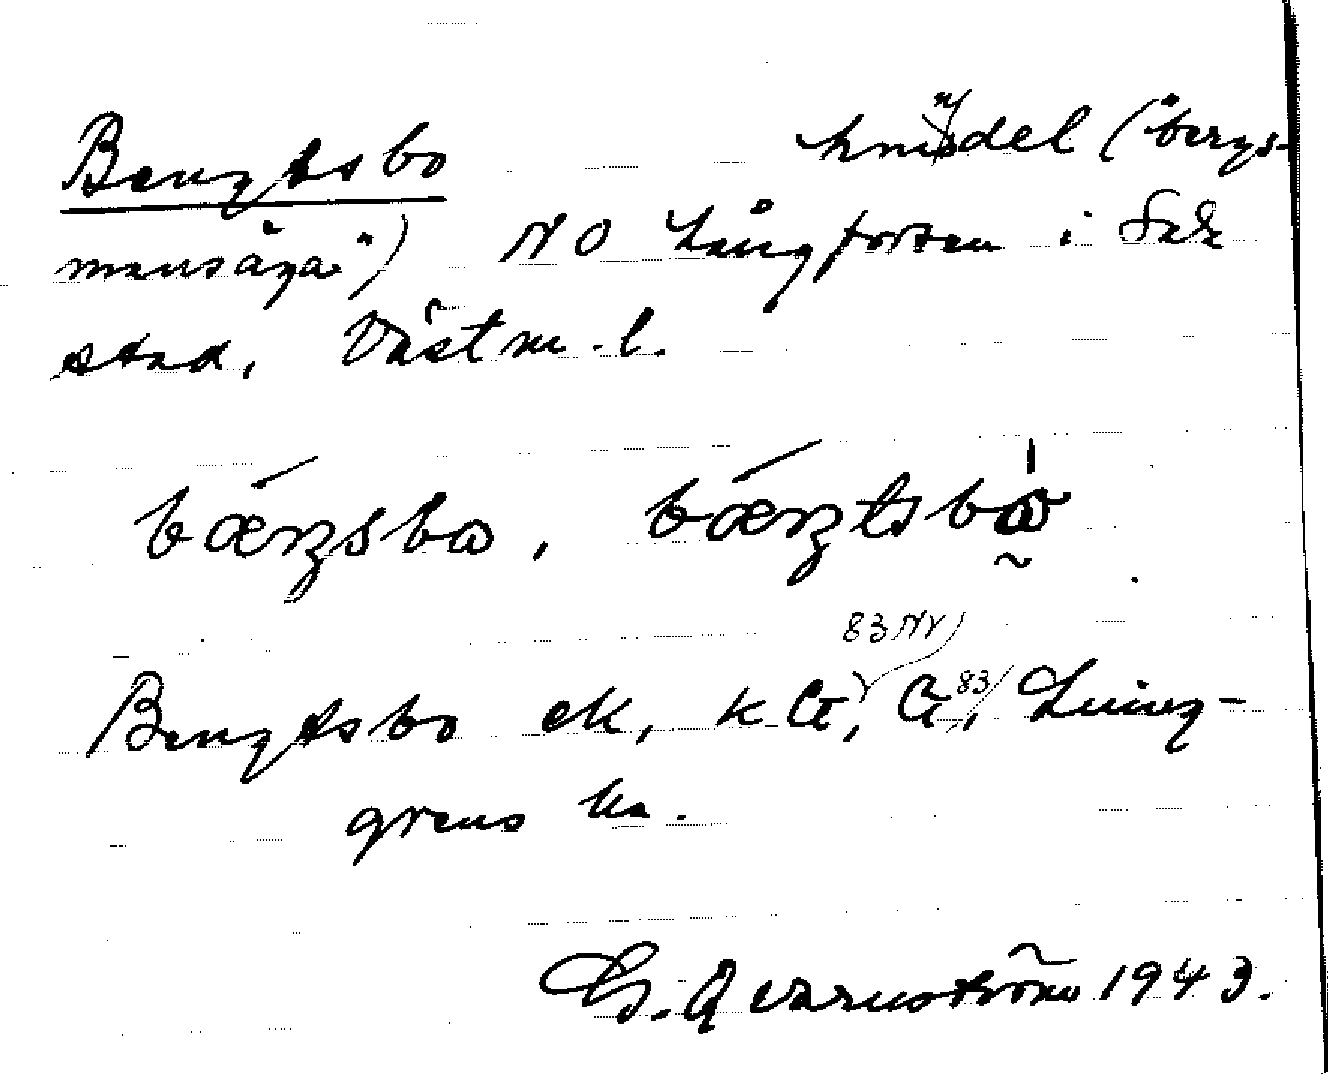 Bengtsbo hmsdel ("bergs-
mansäga") NO Långforsen i Sala
stad, Västm. l.
bæŋsbω, bæŋtsbω
83 NV
Bengtsbo ek, k G, G 83, Ljung-
grens ka.
G. Qvarnström 1943.